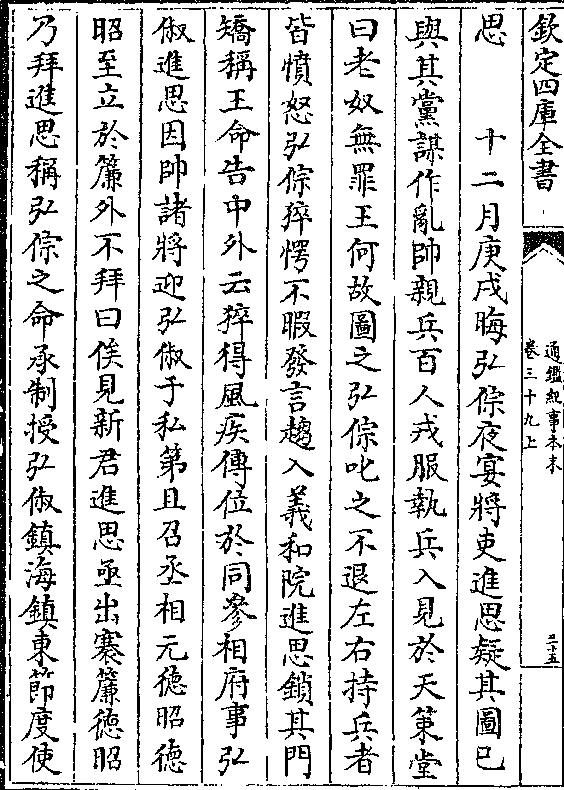 欽定四庫全書
通鑑紀事本末
卷三十九上
三十五
思　　十二月庚戌晦弘倧夜宴將吏進思疑其圖已
與其黨謀作亂帥親兵百人戎服執兵入見於天策堂
曰老奴無罪王何故圖之弘倧叱之不退左右持兵者
皆憤怒弘倧猝愕不暇發言趨入義和院進思鎖其門
矯稱王命告中外云猝得風疾傳位於同參相府事弘
俶進思因帥諸將迎弘俶于私第且召丞相元德昭德
昭至立於簾外不拜曰俟見新君進思亟出褰簾德昭
乃拜進思稱弘倧之命承制授弘俶鎮海鎮東節度使